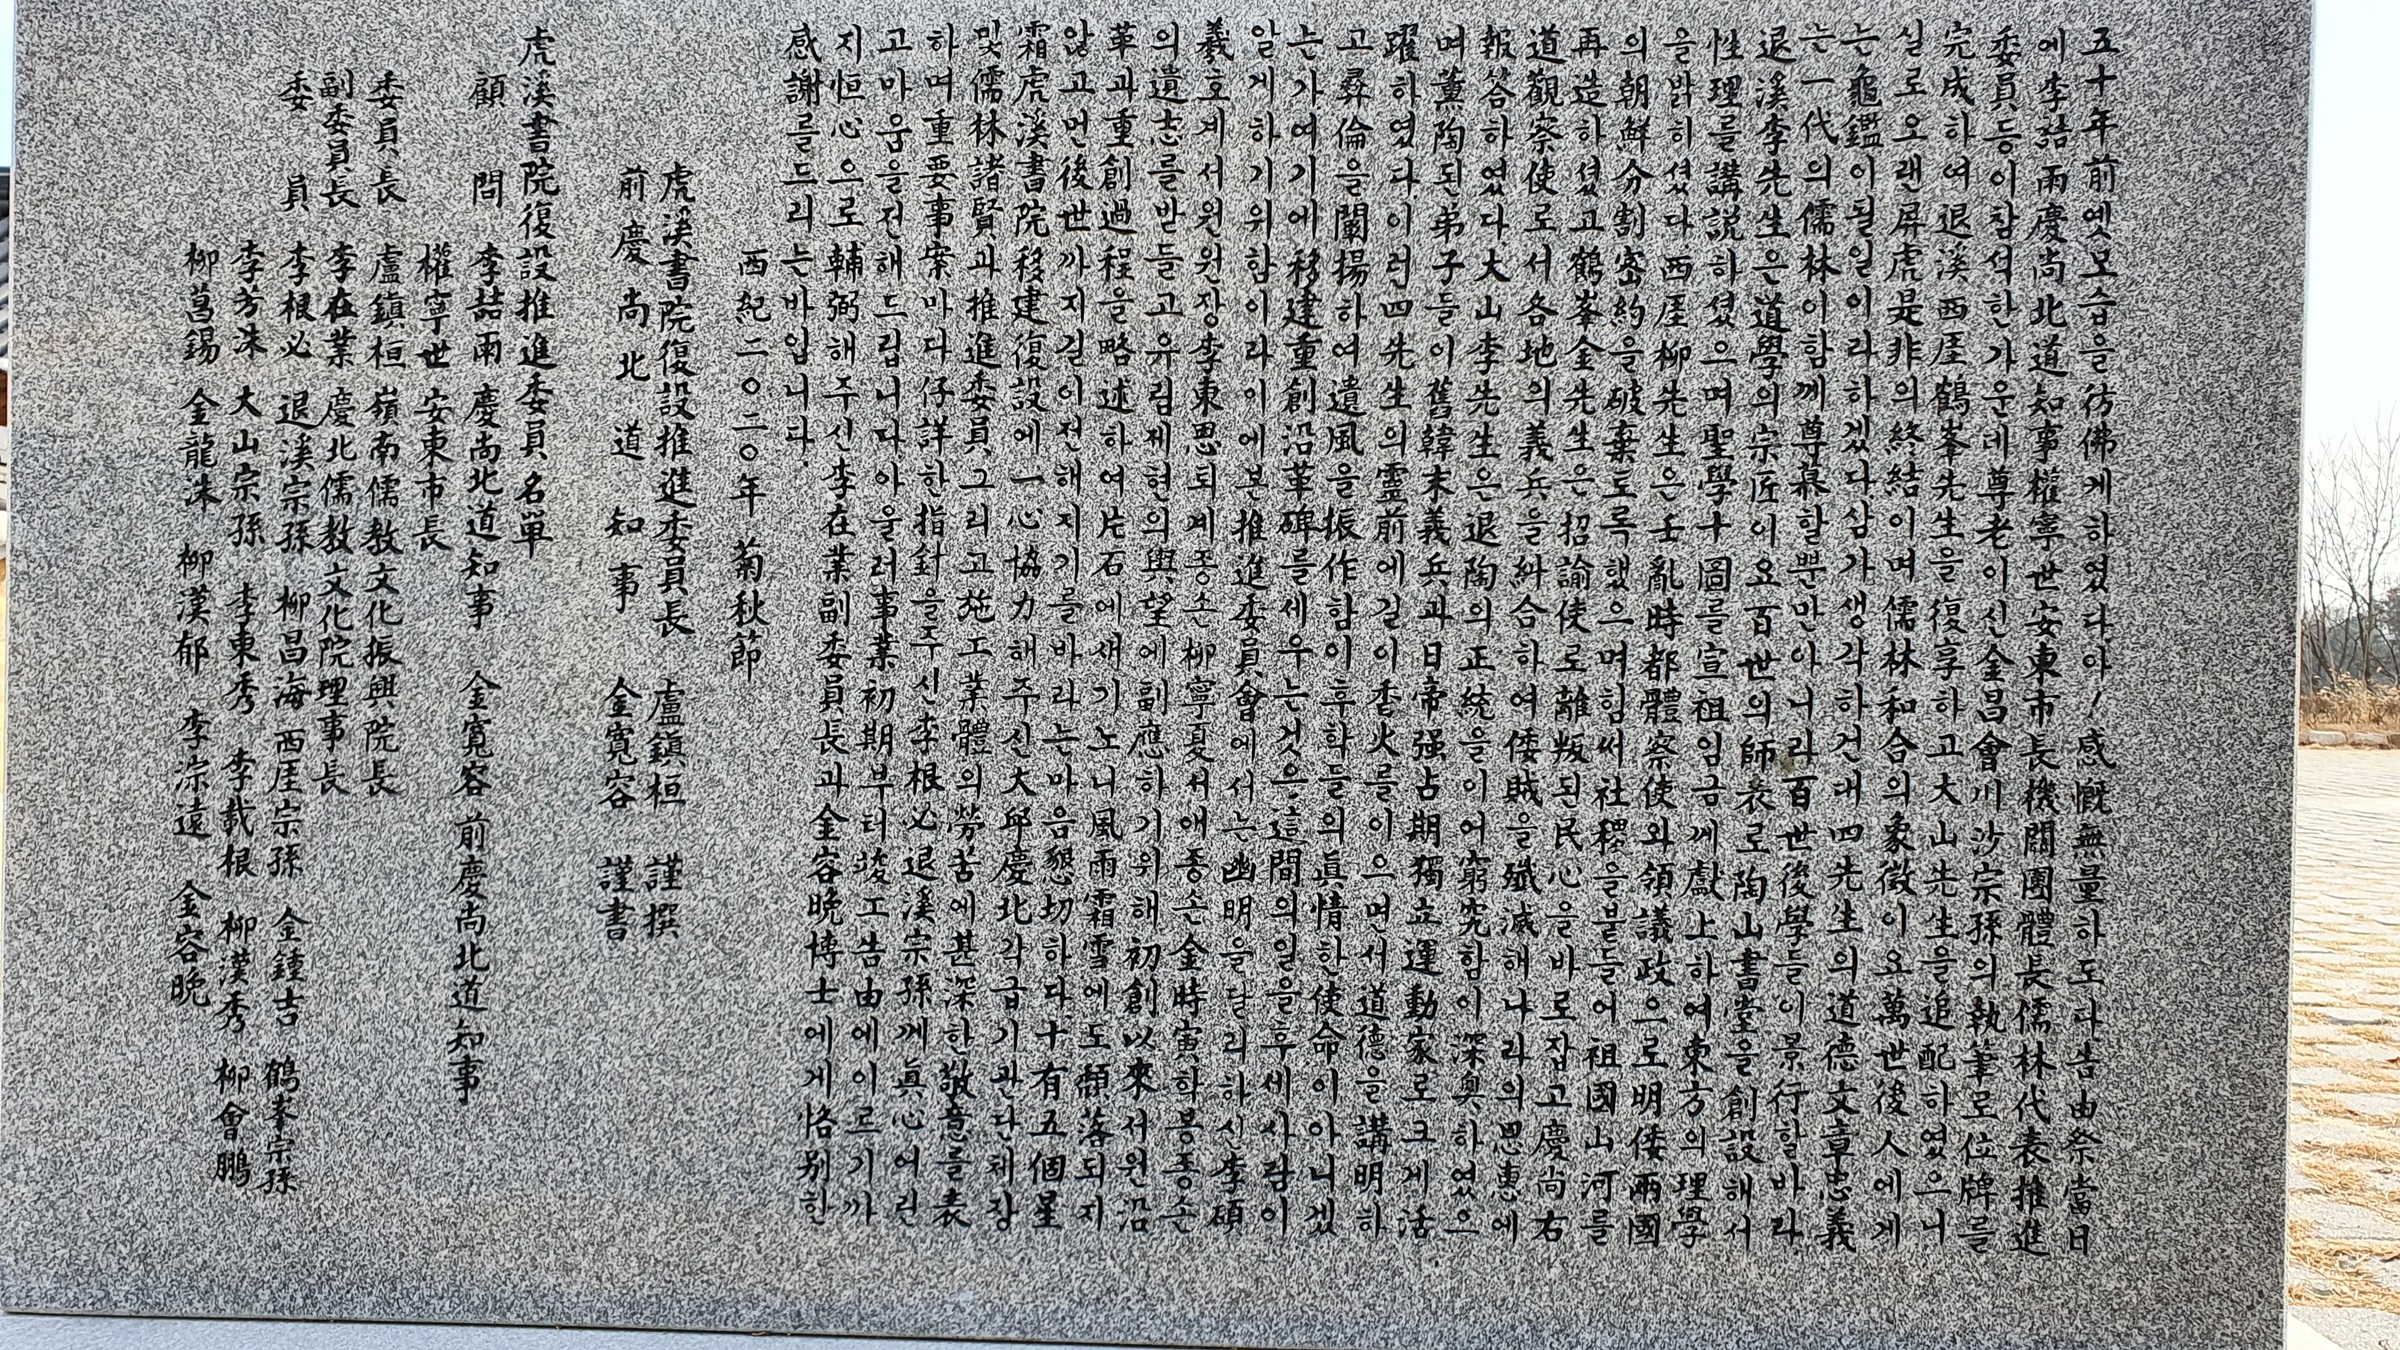 五十年前옛모습을彷佛게하였다아!感慨無量하도다告由祭當日
에李喆雨慶尚北道知事權寧世安東市長機關團體長儒林代表推進
委員等이참석한가운데尊老이신金昌會川沙宗孫의執筆로位牌를
完成하여退溪西厓鶴峯先生을復享하고大山先生을追配하였으니
실로오랜屛虎是非의終結이며儒林和合의象徵이요萬世後人에게
는龜鑑이될일이라하겠다삼가생각하건대四先生의道德文章忠義
는一代의儒林이함께尊慕할뿐만아니라百世後學들이景行할바라
退溪李先生은道學의宗匠이요百世의師表로陶山書堂을創設해서
性理를講說하셨으며聖學十圖를宣祖임금께獻上하여東方의理學
을밝히셨다西厓柳先生은壬亂時都體察使와領議政으로明倭兩國
의朝鮮分割密約을破棄도록했으며힘써社稷을붙들어祖國山河를
再造하셨고鶴峯金先生은招諭使로離叛된民心을바로잡고慶尚右
道觀察使로서各地의義兵을糾合하여倭賊을殲滅해나라의恩惠에
報答하였다大山李先生은退陶의正統을이어窮究함이深奧하였으
며薰陶된弟子들이舊韓末義兵과日帝强占期獨立運動家로크게活
躍하였다이러四先生의靈前에길이香火를이으면서道德을講明하
고彛倫을闡揚하여遺風을振作함이후학들의眞情한使命이아니겠
는가여기에移建重創沿革碑를세우는것은這間의일을후세사람이
알게하기위함이라이에본推進委員會에서는幽明을달리하신李碩
羲호계서원원장李東恩퇴계종손柳寧夏서애종손金時寅학봉종손
의遺志를받들고유림제현의輿望에副應하기위해初創以來서원沿
革과重創過程을略述하여片石에새기노니風雨霜雪에도頹落되지
않고먼後世까지길이전해지기를바라는마음懇切하다十有五個星
霜虎溪書院移建復設에一心協力해주신大邱慶北各급기관단체장
및儒林諸賢과推進委員그리고施工業體의勞苦에甚深한敬意를表
하며重要事案마다仔詳한指針을주신李根必退溪宗孫께眞心어린
고마움을전해드립니다아울러事業初期부터竣工告由에이르기까
지恒心으로輔弼해주신李在業副委員長과金容晩博士에게恪別한
感謝를드리는바입니다.
西紀二〇二〇年 菊秋節
虎溪書院復設推進委員長 盧鎭桓 謹撰
前慶尚北道知事 金寬容 謹書
虎溪書院復設推進委員名單
顧問 李喆雨 慶尚北道知事 金寬容 前慶尚北道知事
權寧世 安東市長
委員長 盧鎭桓 嶺南儒敎文化振興院長
副委員長 李在業 慶北儒敎文化院理事長
委員 李根必 退溪宗孫 柳昌海 西厓宗孫 金鍾吉 鶴峯宗孫
李芳洙 大山宗孫 李東秀 李載根 柳漢秀 柳會鵬
柳菖錫 金龍洙 柳漢郁 李淙遠 金容晩